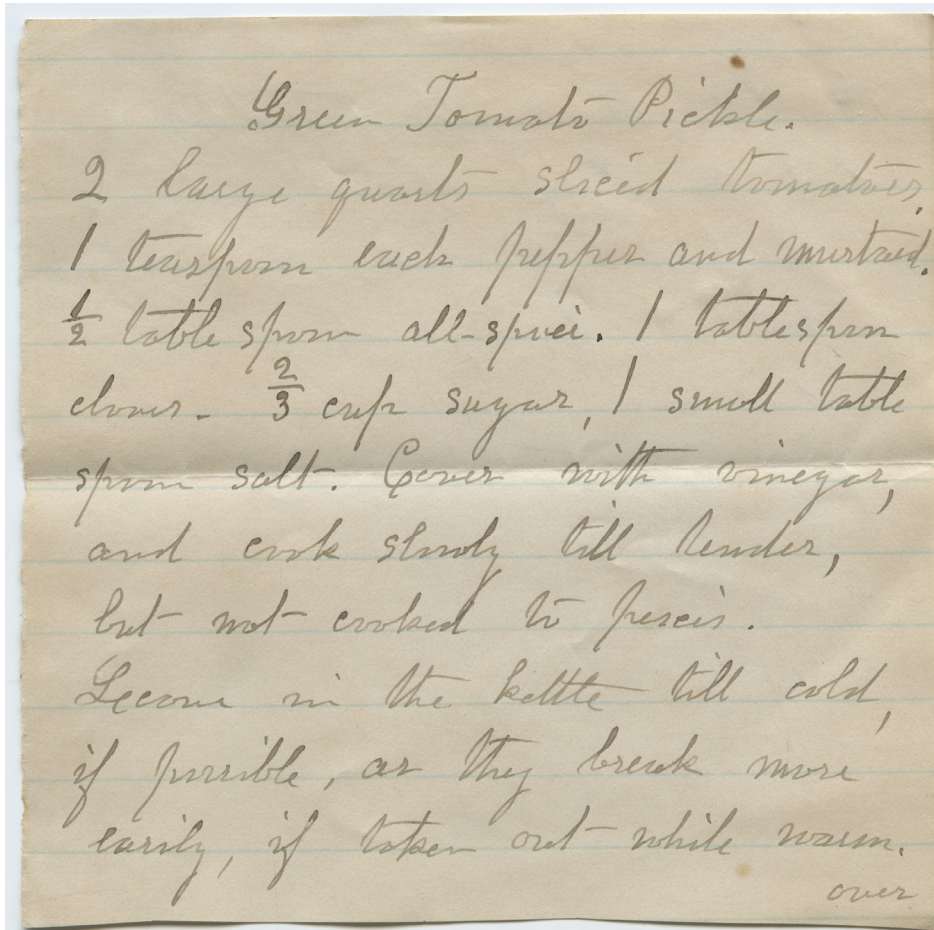 Green Tomato Pickle.
2 large quarts sliced tomatoes,
1 teaspoon each pepper and mustard.
1/2 table spoon all-spice. 1 tablespoon
cloves - 2/3 cup sugar, 1 small table
spoon salt. Cover with vinegar,
and cook slowly till tender,
but not cooked to pieces.
Leave in the kettle till cold,
if possible, as they break more
easily, if taken out while warm.
over